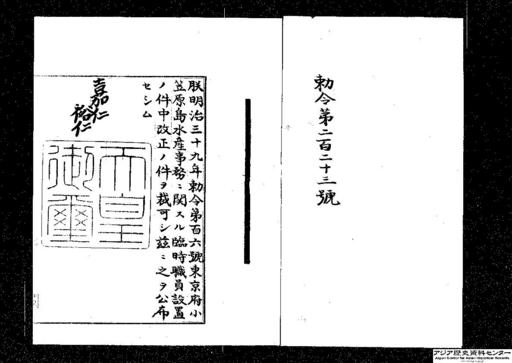 勅令第二百二十三號
朕明治三十九年勅令第百六號東京府小
笠原島水産事務ニ関スル臨時職員設置
ノ件中改正ノ件ヲ裁可シ茲ニ之ヲ公布
セシム
嘉仁
裕仁
天皇
御璽
アジア歴史資料センター
Japan Center for Asian Historical Records